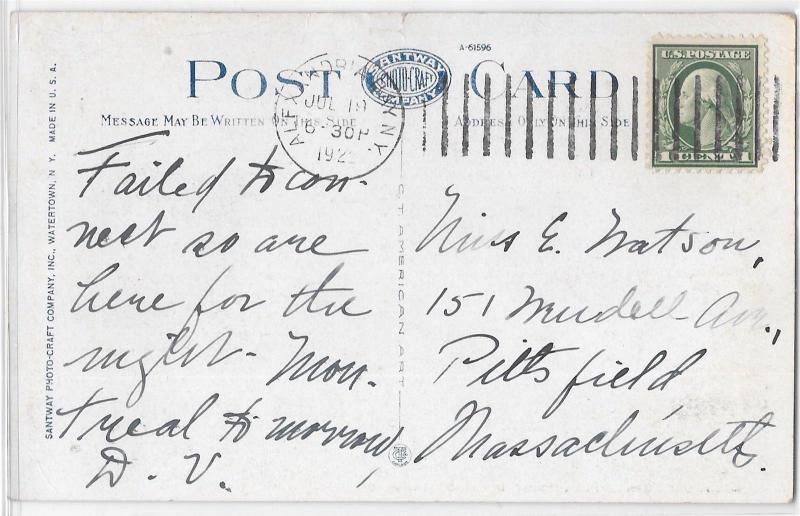 A-61596
POST CARD
SANTWAY
PHOTO-CRAFT
COMPANY
MESSAGE MAY BE WRITTEN ON THIS SIDE
ADDRESS ONLY ON THIS SIDE
U.S. POSTAGE
1 CENT 1
JUL 19
6-30P
192
N.Y.
Failed to con-
nect so are
here for the
night - Mon-
treal to morrow,
D. V.
Miss E. Watson,
151 Wendell Ave.,
Pittsfield
Massachusetts.
SANTWAY PHOTO-CRAFT COMPANY, INC., WATERTOWN, N. Y. MADE IN U. S. A.
ST AMERICAN ART